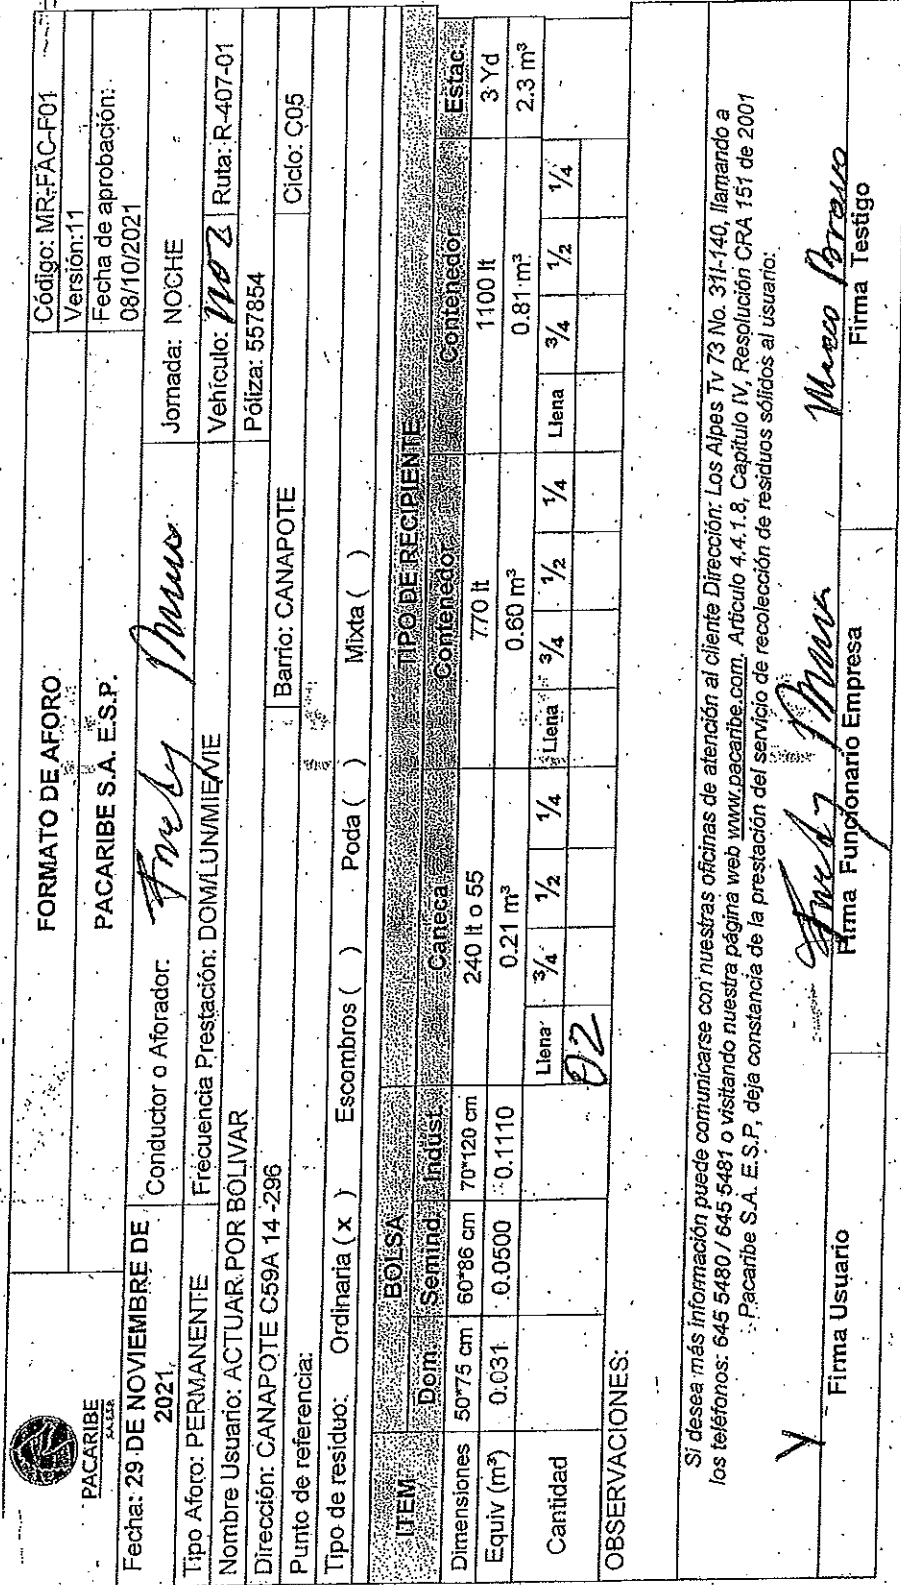 PACARIBE
S.A. E.S.P.
FORMATO DE AFORO
PACARIBE S.A. E.S.P.
Código: MR-FAC-F01
Versión:11
Fecha de aprobación:
08/10/2021
Fecha: 29 DE NOVIEMBRE DE
2021
Conductor o Aforador:
Jornada: NOCHE
Tipo Aforo: PERMANENTE
Frecuencia Prestación: DOM/LUN/MIE/VIE
Vehículo:
Ruta: R-407-01
Nombre Usuario: ACTUAR POR BOLIVAR
Póliza: 557854
Dirección: CANAPOTE C59A 14 -296
Barrio: CANAPOTE
Ciclo: C05
Punto de referencia:
Tipo de residuo: Ordinaria ( x ) Escombros ( ) Poda ( ) Mixta ( )
ITEM BOLSA TIPO DE RECIPIENTE
Dom. Semind. Indust. Caneca Contenedor Contenedor Estac.
Dimensiones 50*75 cm 60*86 cm 70*120 cm 240 lt o 55 770 lt 1100 lt 3 Yd
Equiv (m³) 0.031 0.0500 0.1110 0.21 m³ 0.60 m³ 0.81 m³ 2.3 m³
Cantidad Llena 3/4 1/2 1/4 Llena 3/4 1/2 1/4 Llena 3/4 1/2 1/4
02
OBSERVACIONES:
Si desea más información puede comunicarse con nuestras oficinas de atención al cliente Dirección: Los Alpes Tv 73 No. 31I-140, llamando a
los teléfonos: 645 5480 / 645 5481 o visitando nuestra página web www.pacaribe.com. Articulo 4.4.1.8, Capítulo IV, Resolución CRA 151 de 2001
Pacaribe S.A. E.S.P, deja constancia de la prestación del servicio de recolección de residuos sólidos al usuario:
Firma Usuario
Firma Funcionario Empresa
Firma Testigo